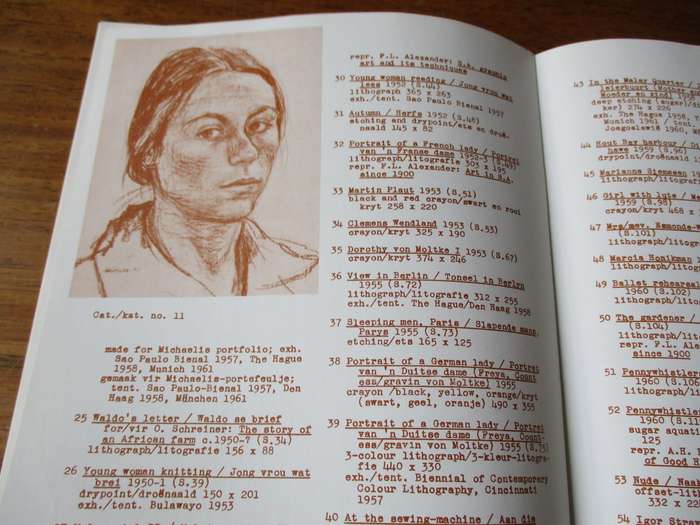 Cat./kat. no. 11
made for Michaelis portfolio; exh.
Sao Paulo Bienal 1957, The Hague
1958, Munich 1961
gemaak vir Michaelis-portefeulje;
tent. Sao Paulo-Bienal 1957, Den
Haag 1958, München 1961
25 Waldo's letter / Waldo se brief
for/vir O. Schreiner: The story of
an African farm c.1950-7 (S.34)
lithograph/litografie 156 x 88
26 Young women knitting / Jong vrou wat
brei 1950-1 (S.39)
drypoint/droënaald 150 x 201
exh./tent. Bulawayo 1953
repr. F.L. Alexander: S.A. graphic
art and its techniques
30 Young woman reading / Jong vrou wat
lees 1952 (S.44)
lithograph 365 x 263
exh./tent. Sao Paulo Bienal 1957
31 Autumn / Herfs 1952 (S.46)
etching and drypoint/ets en droë
naald 145 x 82
32 Portrait of a French lady / Portret
van 'n Franse dame 1952-3
lithograph/litografie 303 x 195
repr. F.L. Alexander: Art in S.A.
since 1900
33 Martin Plaut 1953 (S.51)
black and red crayon/swart en rooi
kryt 258 x 220
34 Clemens Wendland 1953 (S.53)
crayon/kryt 325 x 190
35 Dorothy von Moltke I 1953 (S.67)
crayon/kryt 374 x 246
36 View in Berlin / Toneel in Berlyn
1955 (S.72)
lithograph/litografie 312 x 255
exh./tent. The Hague/Den Haag 1958
37 Sleeping men, Paris / Slapende mans,
Parys 1955 (S.73)
etching/ets 165 x 125
38 Portrait of a German lady / Portret
van 'n Duitse dame (Freya, Count
ess/gravin von Moltke) 1955
crayon /black, yellow, orange/kryt
(swart, geel, oranje) 490 x 355
39 Portrait of a German lady / Portret
van 'n Duitse dame (Freya, Count-
ess/gravin von Moltke) 1955
3-colour lithograph/3-kleur-litogra-
fie 440 x 330
exh./tent. Biennial of Contemporary
Colour Lithography, Cincinnati
1957
40 At the sewing-machine / Aan die
43 In the Malay Quarter /
deep etching
ker) 274 x 226
exh. The Hague 1958,
Munich 1961 / tent.
1960,
44 Hout Bay harbour /
1959 (S.96)
drypoint/droënaald
45 Marianne
lithograph/litografie
46 Girl with lute /
1959 (S.98)
crayon/kryt 468
47 Mrs/mev.
(S.101)
lithograph/
48 Marcia Honikman
lithograph/
49 Ballet rehearsal
1960 (S.102)
lithograph/
50 The gardener /
(S.104)
lithograph/
repr. F.L.
since 1900
51 Pennywhistlers
1960
lithograph
52 Pennywhistler
1960
sugar
125
repr. A.H.
of Good
53 Nude /
offset-
332 x
54 Igor